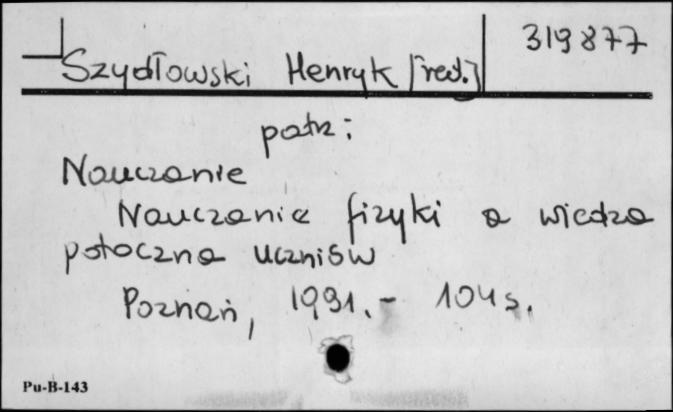 319877
Szydłowski Henryk [red.]
patrz:
Nauczanie
Nauczanie fizyki a wiedza
potoczna uczniów
Poznań, 1991. - 104 s.
Pu-B-143